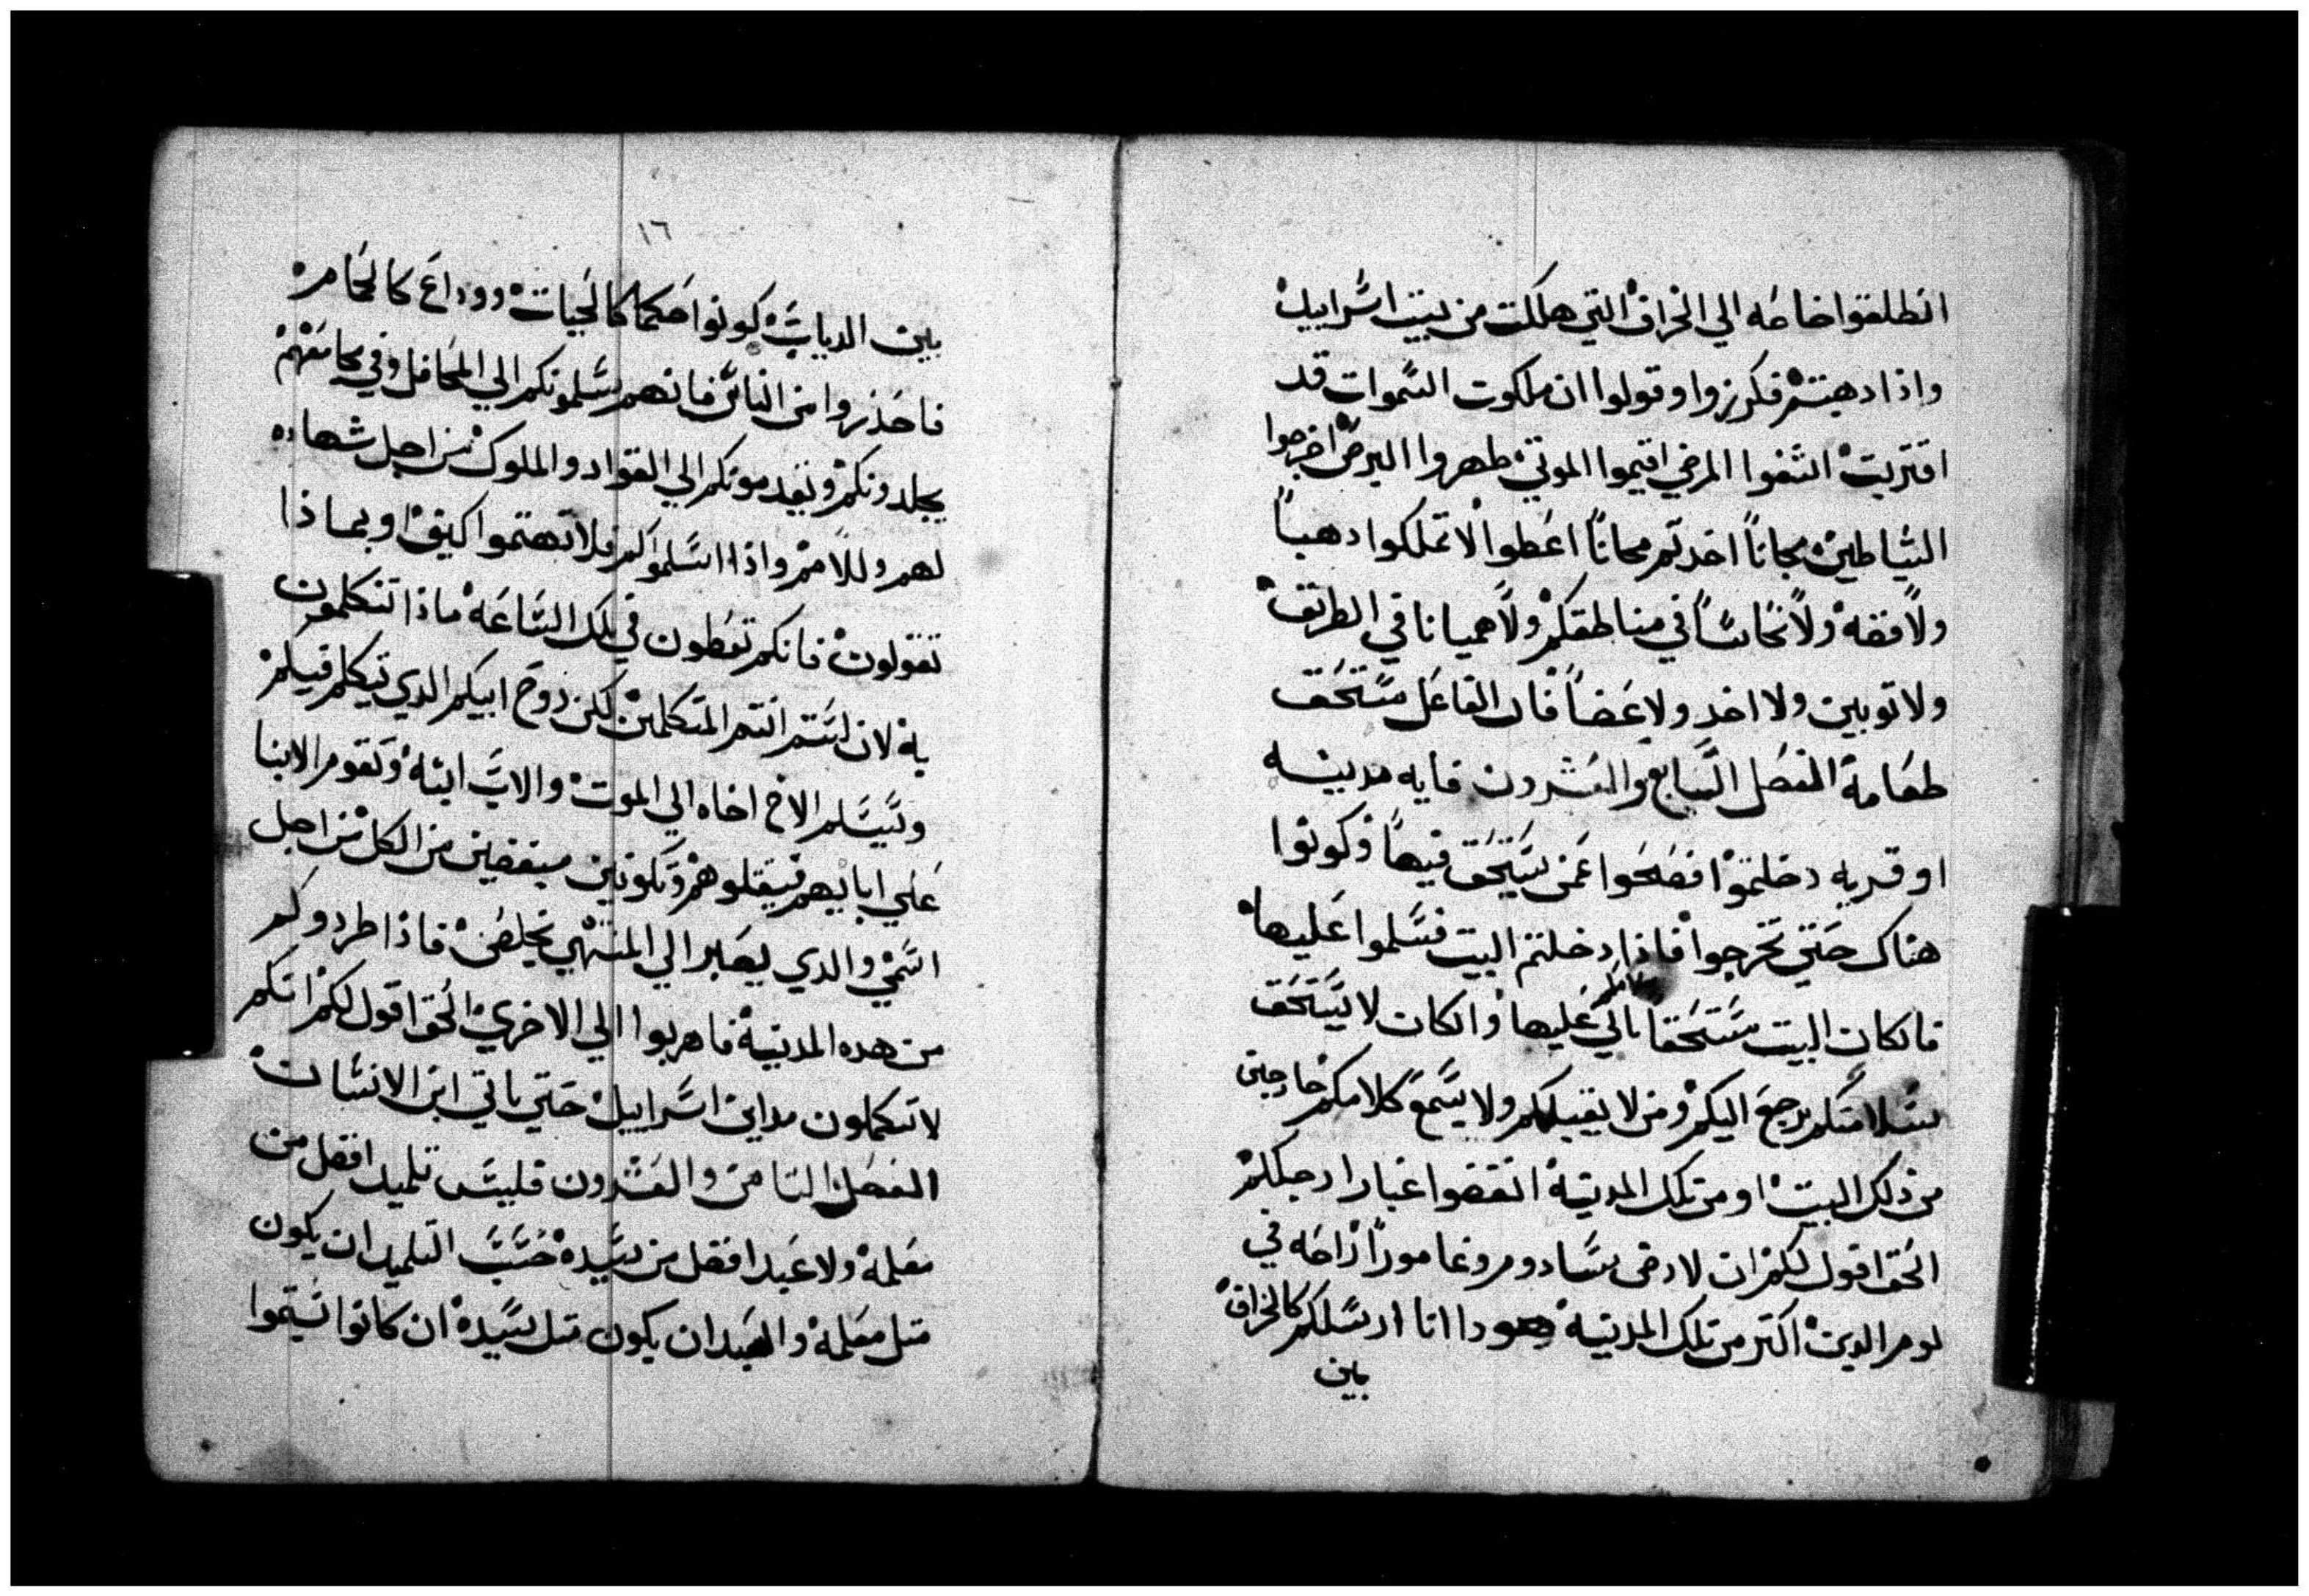 انطلقوا خاصه الي الخراف التي هلكت من بيت اسراييل
واذا دهبتم فكرزوا وقولوا ان ملكوت السموات قد
اقتربت اشفوا المرضي اقيموا الموتي طهروا البرص اخرجوا
الشياطين مجاناً اخدتم مجاناً اعطوا لا تملكوا دهباً
ولا فضه ولا نحاساً في مناطقكم ولا هميانا في الطريق
ولا توبين ولا احد ولا عضاً فان الفاعل مستحق
طعامه الفصل السابع والعشرون فايه مدينه
او قريه دخلتموا فصحوا عمن يستحق فيها وكونوا
هناك حتي تخرجوا فاذا دخلتم البيت فسلموا عليها
فانكان البيت مستحقا سلامكم ياتي عليها وانكان لا يستحق
سلامتكم يرجع اليكم ومن لا يقبلكم ولا يسمع كلامكم خارجين
من ذلك البيت او من تلك المدينة انفضوا غبار ارجلكم
الحق اقول لكم ان لارض سادوم وغاموراً راحه في
يوم الدين اكتر من تلك المدينة هودا انا ارسلكم كالخراف
بين
١٦
بين الدياب كونوا حكما كالحيات ووداع كالحمام
فاحذروا من الناس فانهم يسلمونكم الي المحافل وفي مجامعهم
يجلدونكم ويقدمونكم الي القواد والملوك من اجل شهاده
لهم وللامم واذا اسلموكم فلا تهتموا كيف او بماذا
تقولون فانكم تعطون في تلك الساعه ماذا تتكلمون
به لان لستم انتم المتكلمين لكن روح ابيكم الدي يتكلم فيكم
ويسلم الاخ اخاه الي الموت والاب ابنه وتقوم الابنا
علي ابايهم فيقتلوهم وتكونين مبغضين من الكل من اجل
اسمي والدي يصبر الي المنتهي يخلص فاذا طردوكم
من هده المدينة فاهربوا الي الاخري الحق اقول لكم انكم
لا تكملون مداين اسراييل حتي ياتي ابن الانسان
الفصل التامن والعشرون فليس تلميد افضل من
معلمه ولا عبد افضل من سيده حسب التلميد ان يكون
متل معلمه والعبد ان يكون متل سيده ان كانوا يسموا